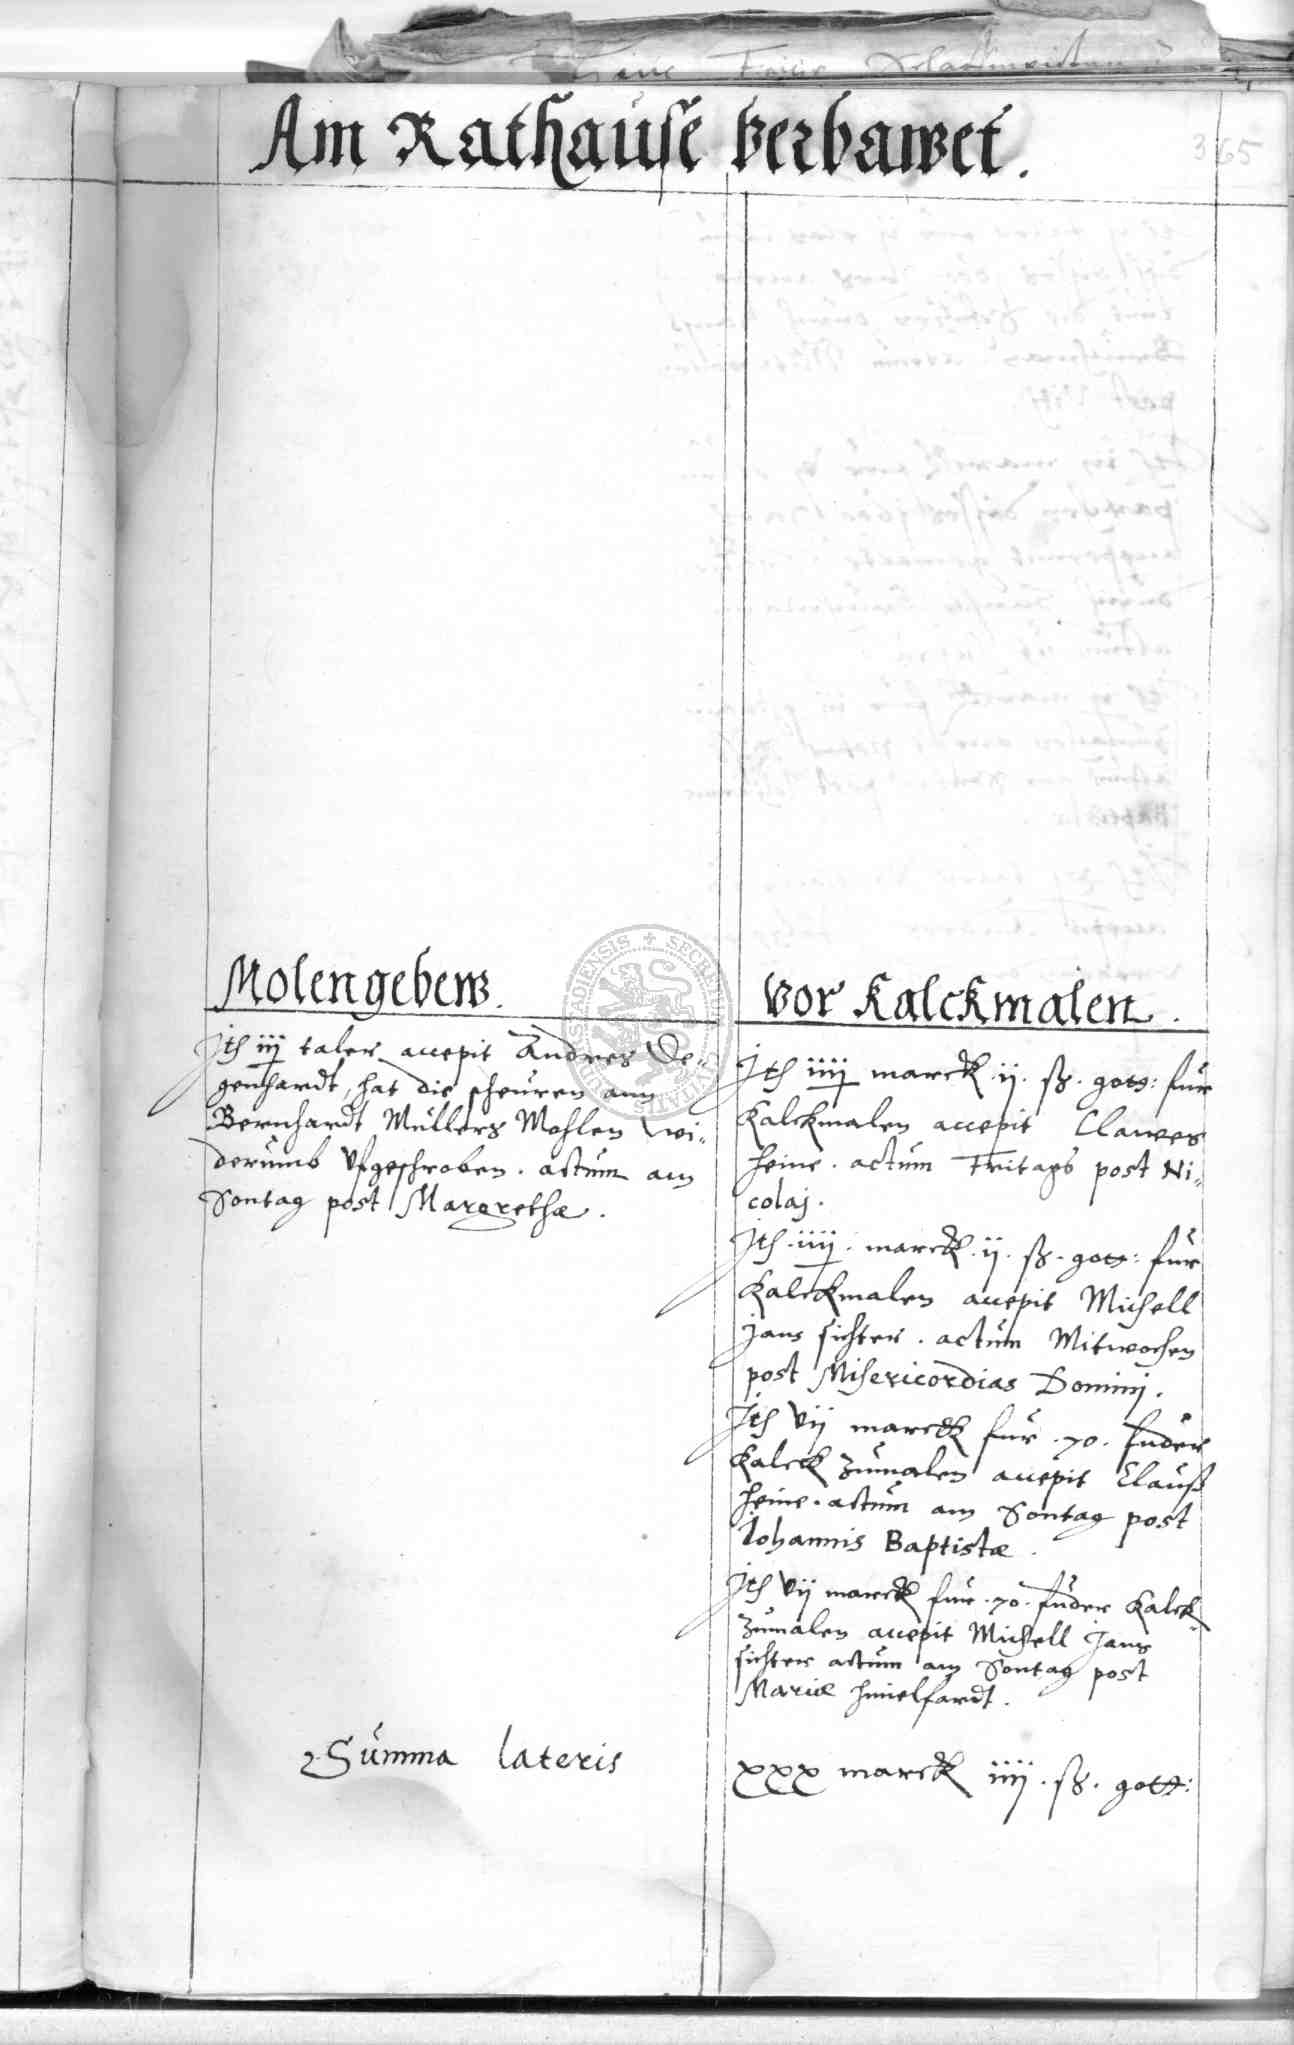 Am Rathause verbawet.
365
Molengebew.
Jtem iij taler accepit Andres De-
genhardt, hat die scheuren ann
Bernhardt Müllers Mohlen wi-
derumb ufgeschroben. actum am
Sontag post Margrethæ.
Vor Kalckmalen.
Jtem iiij marck .ij. ß. gott: fur
Kalckmalen accepit Clawes
Heine. actum Fritags post Ni-
colaj.
Jtem .iiij. marck .ij. ß. gott: fur
Kalckmalen accepit Michell
Jans sichter. actum Mitwochen
post Misericordias Dominj.
Jtem vij marck fur .70. fuder
Kalck zumalen accepit Clauß
Heine. actum am Sontag post
Johannis Baptistæ.
Jtem vij marck fur .70. fuder Kalck
zumalen accepit Michell Jans
sichter actum am Sontag post
Mariæ himelfardt.
Summa lateris
xxx marck iiij. ß. gott: